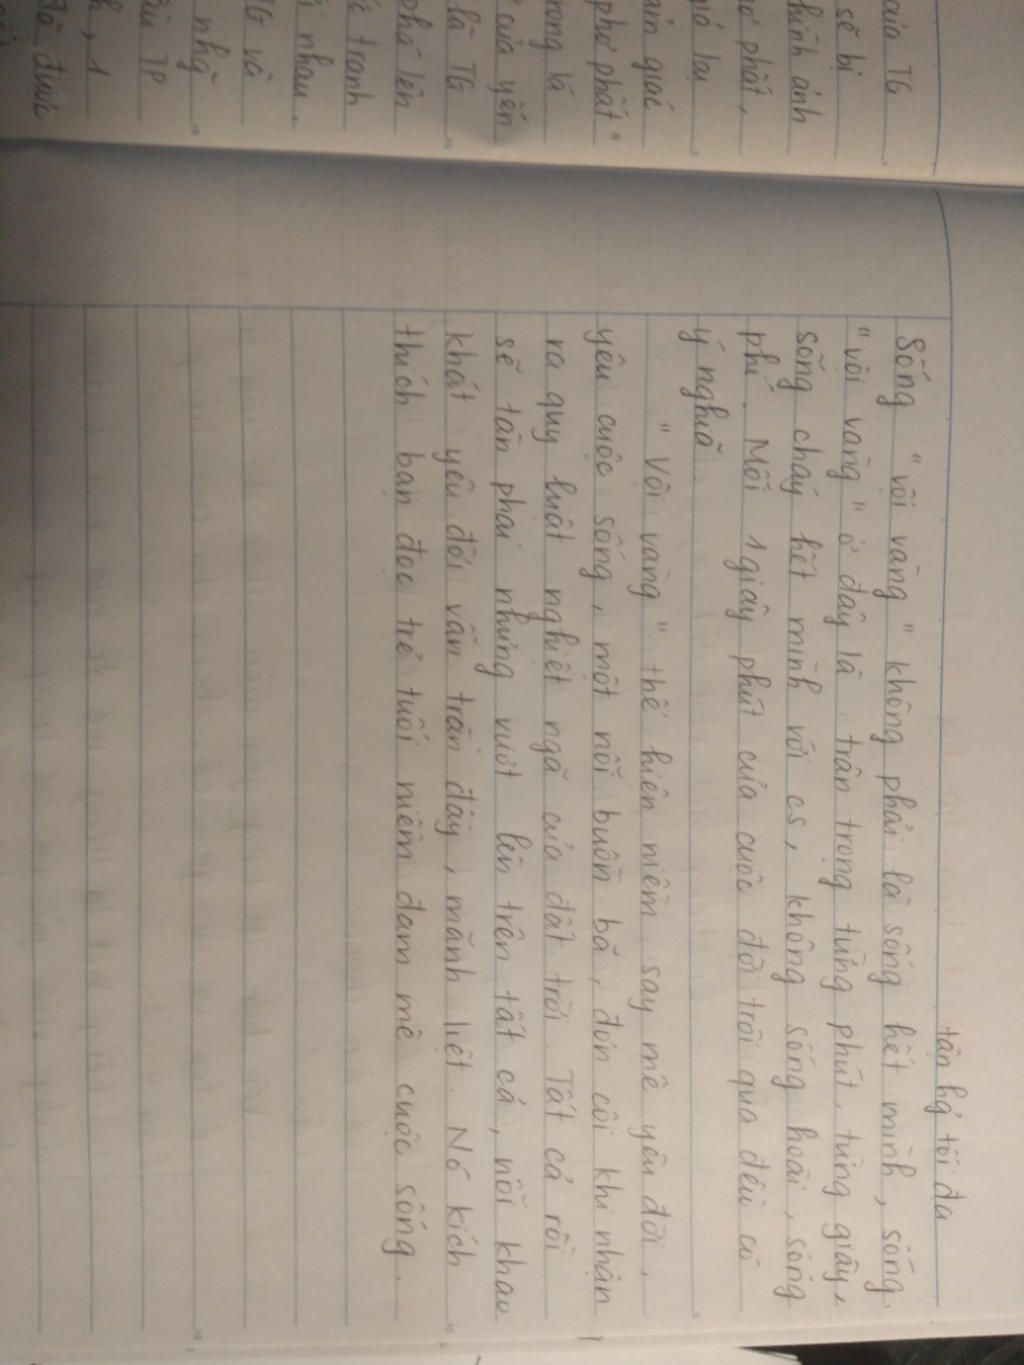 của TG
sẽ bị
hình ảnh
phất,
lại
giác
phơ phất"
trong lá
của yến
là TG
phá lên
tranh
nhau.
TG và
nhg̃
TP
, 1
đã được
tận hg̉ tối đa
Sống "vội vàng" không phải là sống hết mình, sống
"vội vàng" ở đây là trân trọng từng phút, từng giây,
sống cháy hết mình với cs, không sống hoài, sống
phí. Mỗi 1 giây phút của cuộc đời trôi qua đều có
ý nghĩa.
"Vội vàng" thể hiện niềm say mê yêu đời,
yêu cuộc sống, một nỗi buồn bã, đơn côi khi nhận
ra quy luật nghiệt ngã của đất trời. Tất cả rồi
sẽ tàn phai nhưng vượt lên trên tất cả, nỗi khao
khát yêu đời vẫn tràn đầy, mãnh liệt. Nó kích
thích bạn đọc trẻ tuổi niềm đam mê cuộc sống.